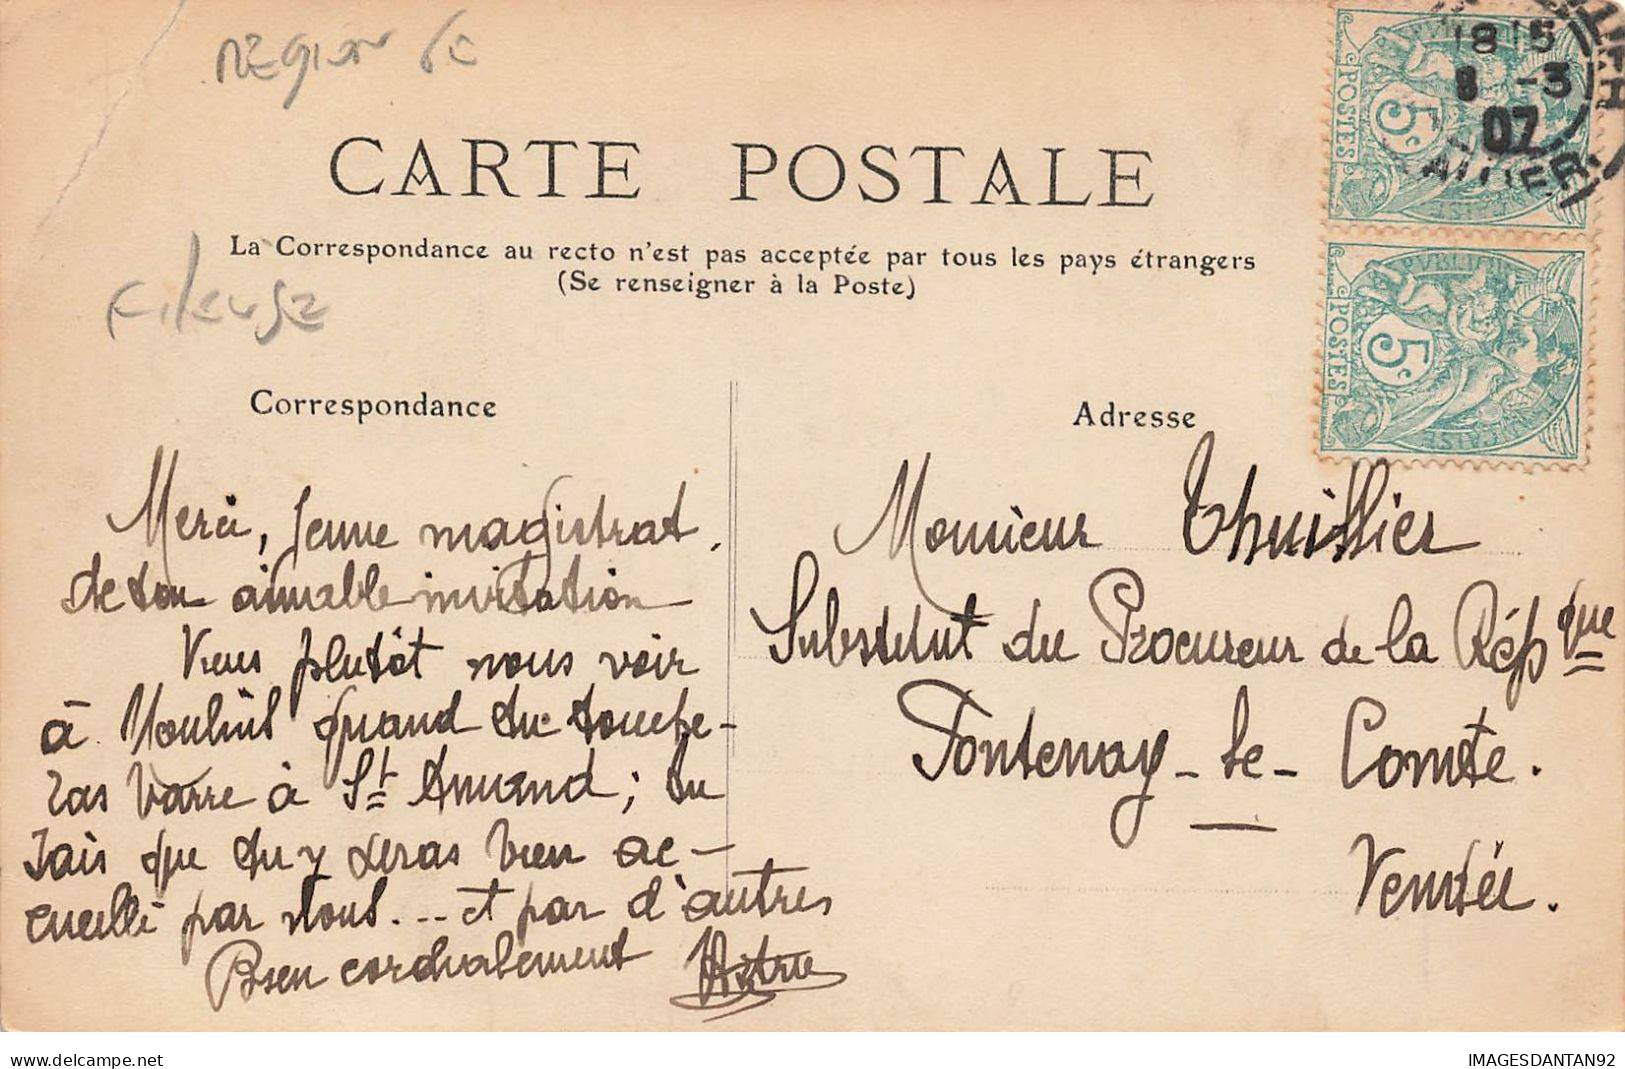 REGION 6€
CARTE POSTALE
La Correspondance au recto n'est pas acceptée par tous les pays étrangers
(Se renseigner à la Poste)
Fileuse
5c
POSTES
18 15
8 -3
07
ALLIER
5c
POSTES
Correspondance
Merci, jeune magistrat,
de ton aimable invitation
Viens plutôt nous voir
à Moulins quand tu toucheras
ras barre à St Amand ; tu
sais que tu y seras bien ac-
cueilli par nous... et par d'autres
Bien cordialement
Adresse
Monsieur Thuillier
Substitut du Procureur de la Répque
Fontenay-le-Comte.
Vendée.
delcampe.net
IMAGESDANTAN92